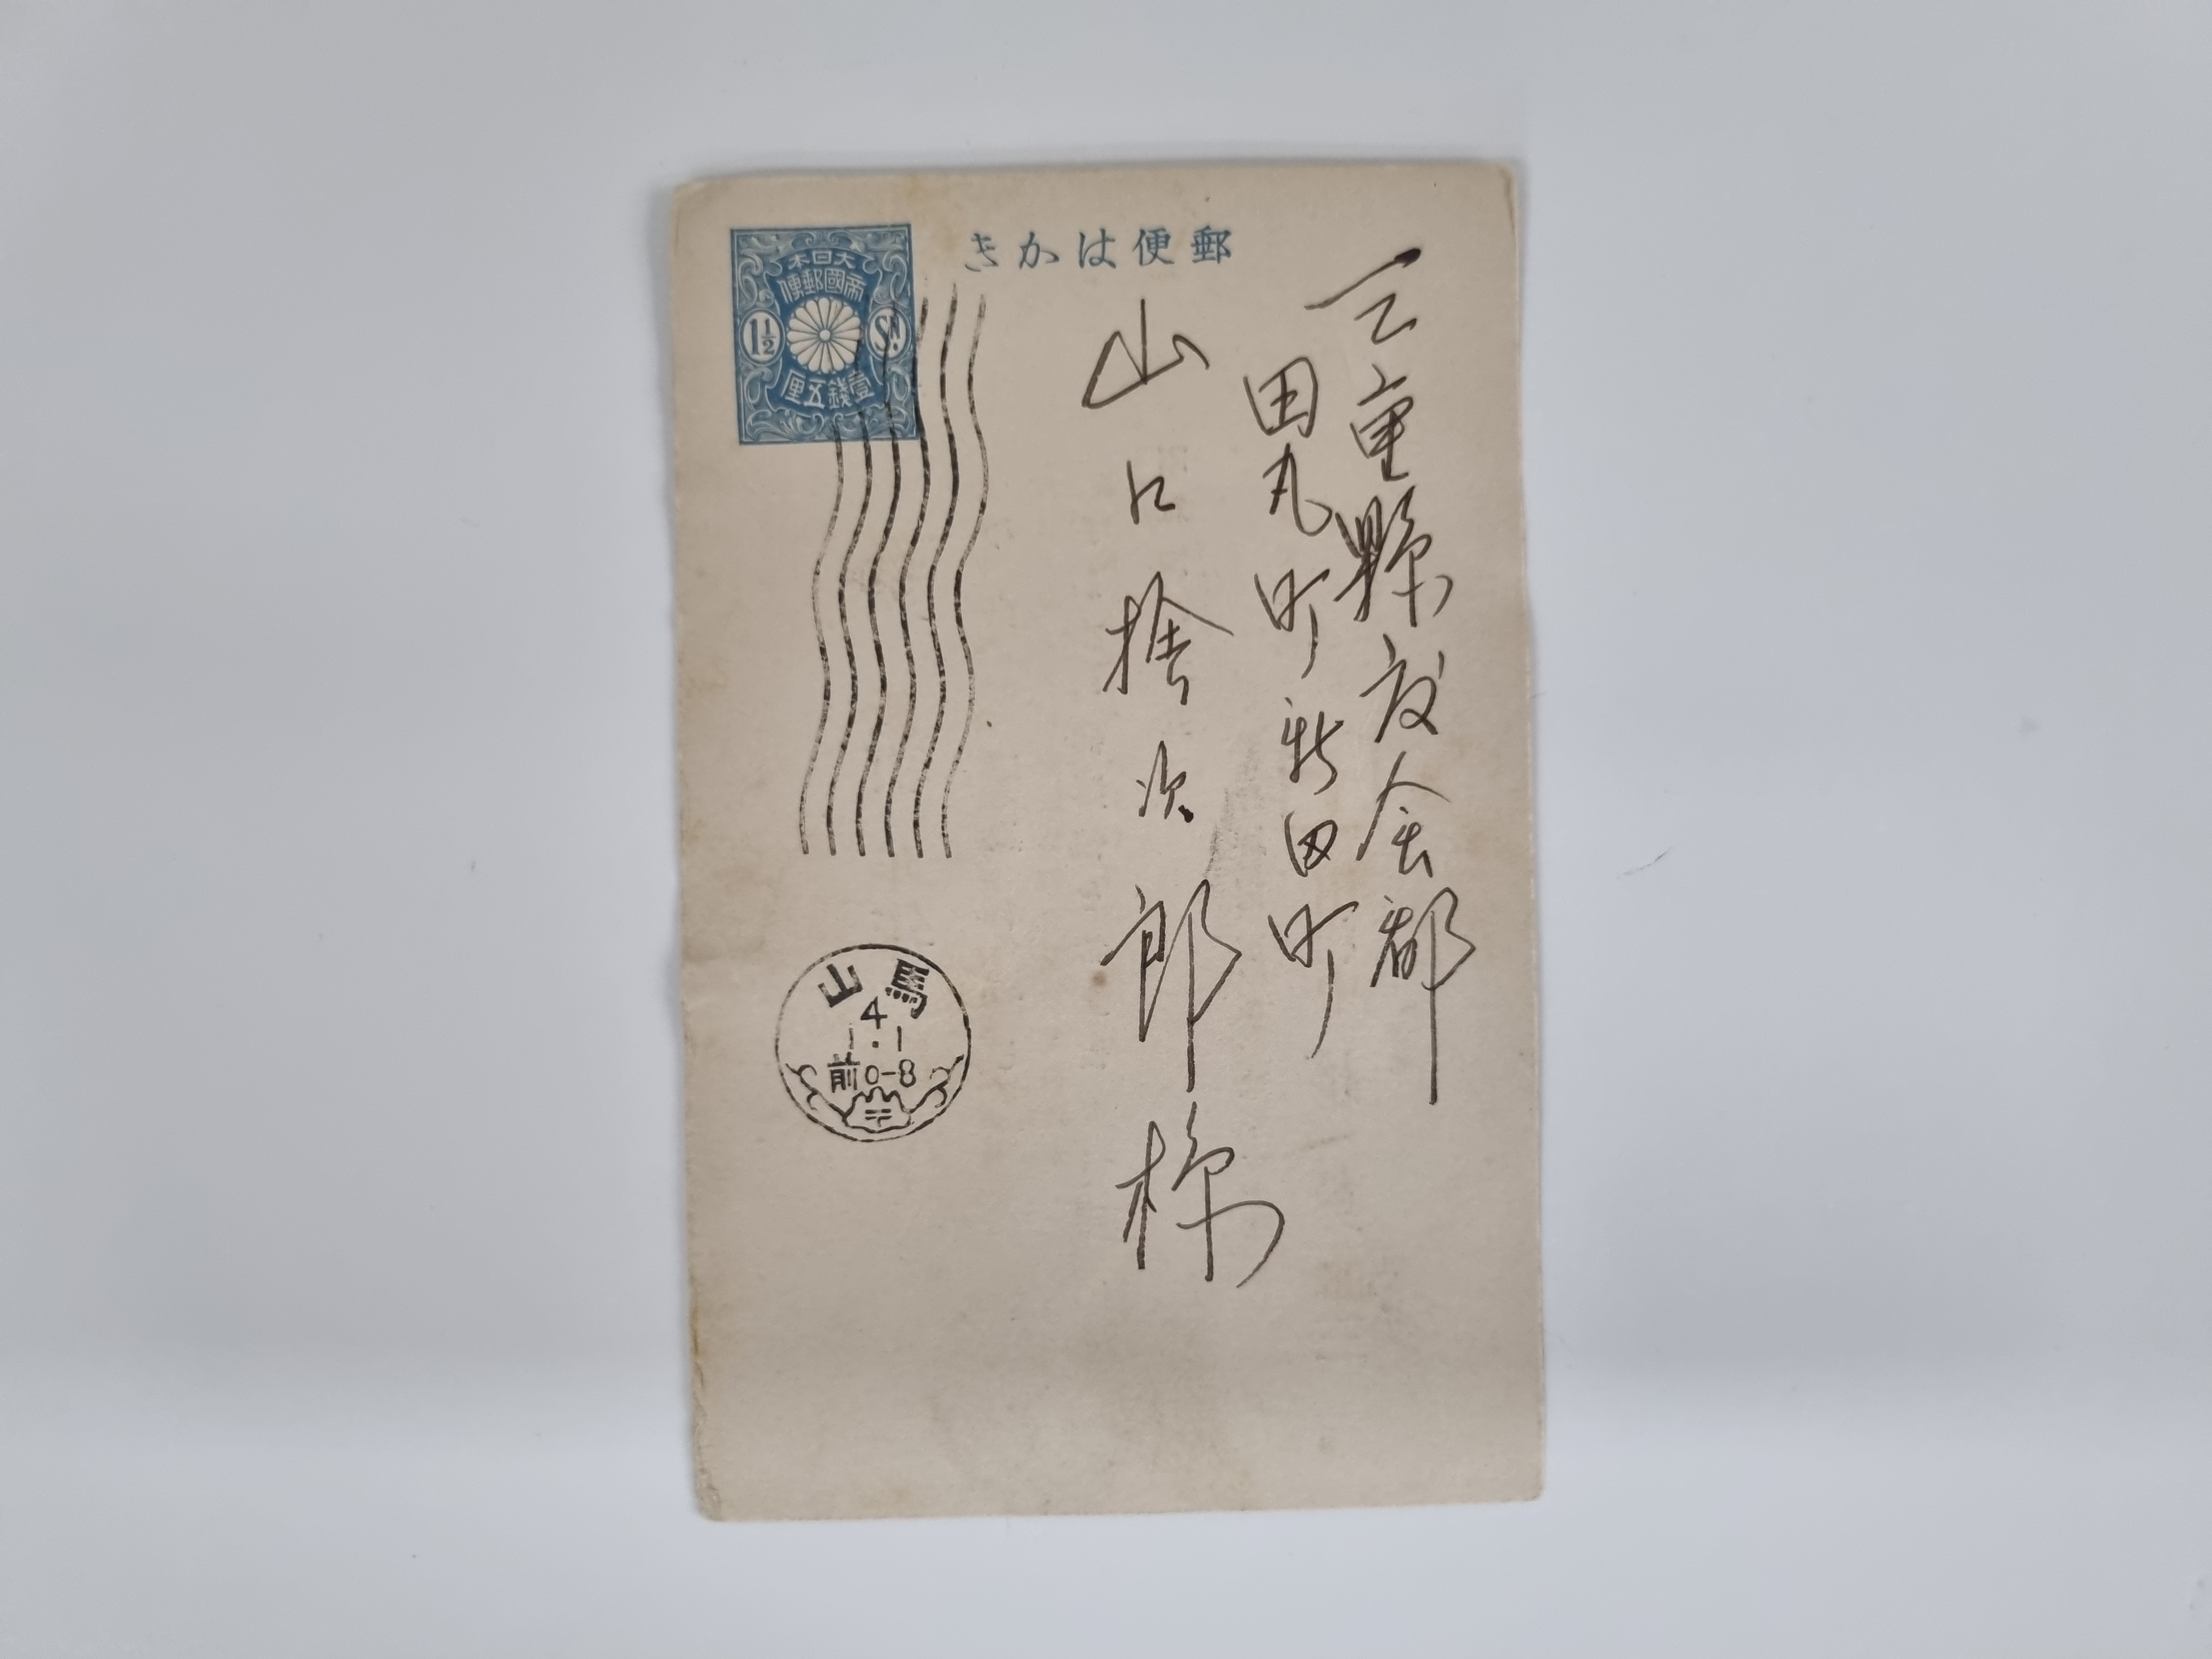 郵便はかき
大日本
帝國郵便
1½ Sn.
壹錢五厘
三重縣度会郡
田丸町新田町
山口捨次郎様
馬山
4
1.1
前0-8
〒